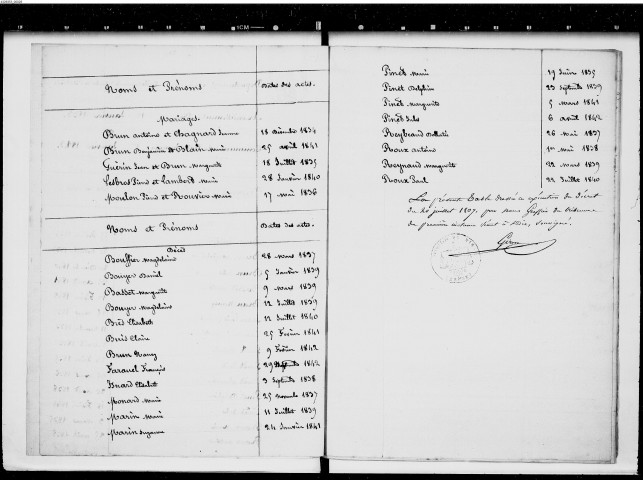 Noms et Prénoms Dates des actes.
Mariages.
Brun antoine et Chagnard Jeanne 18 Décembre 1834
Brun Benjamin et Blain Marie 25 avril 1841
Guérin Jean et Brun Marguerite 18 Juillet 1835
Lesbros Pierre et Lambert Marie 28 Janvier 1840
Moulon Pierre et Rouvier Marie 17 mai 1836
Noms et Prénoms Dates des actes.
Décès
Bouffier Magdelaine 28 mars 1837
Bouyer Daniel 5 Janvier 1839
Basset Marguerite 9 mars 1839
Bouyer Magdelaine 12 Juillet 1839
Bres Elisabeth 12 Juillet 1840
Buis Claire 25 Février 1841
Brun 9 Février 1842
Faravel François 29 1842
Isnard Elisabeth 3 Septembre 1838
Monard Marie 25 novembre 1837
Marin Marie 11 Juillet 1839
Marin Suzanne 24 Janvier 1841
Pinet Marie 19 Juin 1835
Pinet Delphin 23 septembre 1839
Pinet Marguerite 5 mars 1841
Pinet Jules 6 août 1842
Reybeaud 26 mai 1837
Roux antoine 1er mai 1838
Reynaud marguerite 22 mars 1839
Roux Paul 22 Juillet 1840
La présente Table dressée en exécution du Décret
du 20 juillet 1807, par nous Greffier du tribunal
de première instance séant à soussigné.